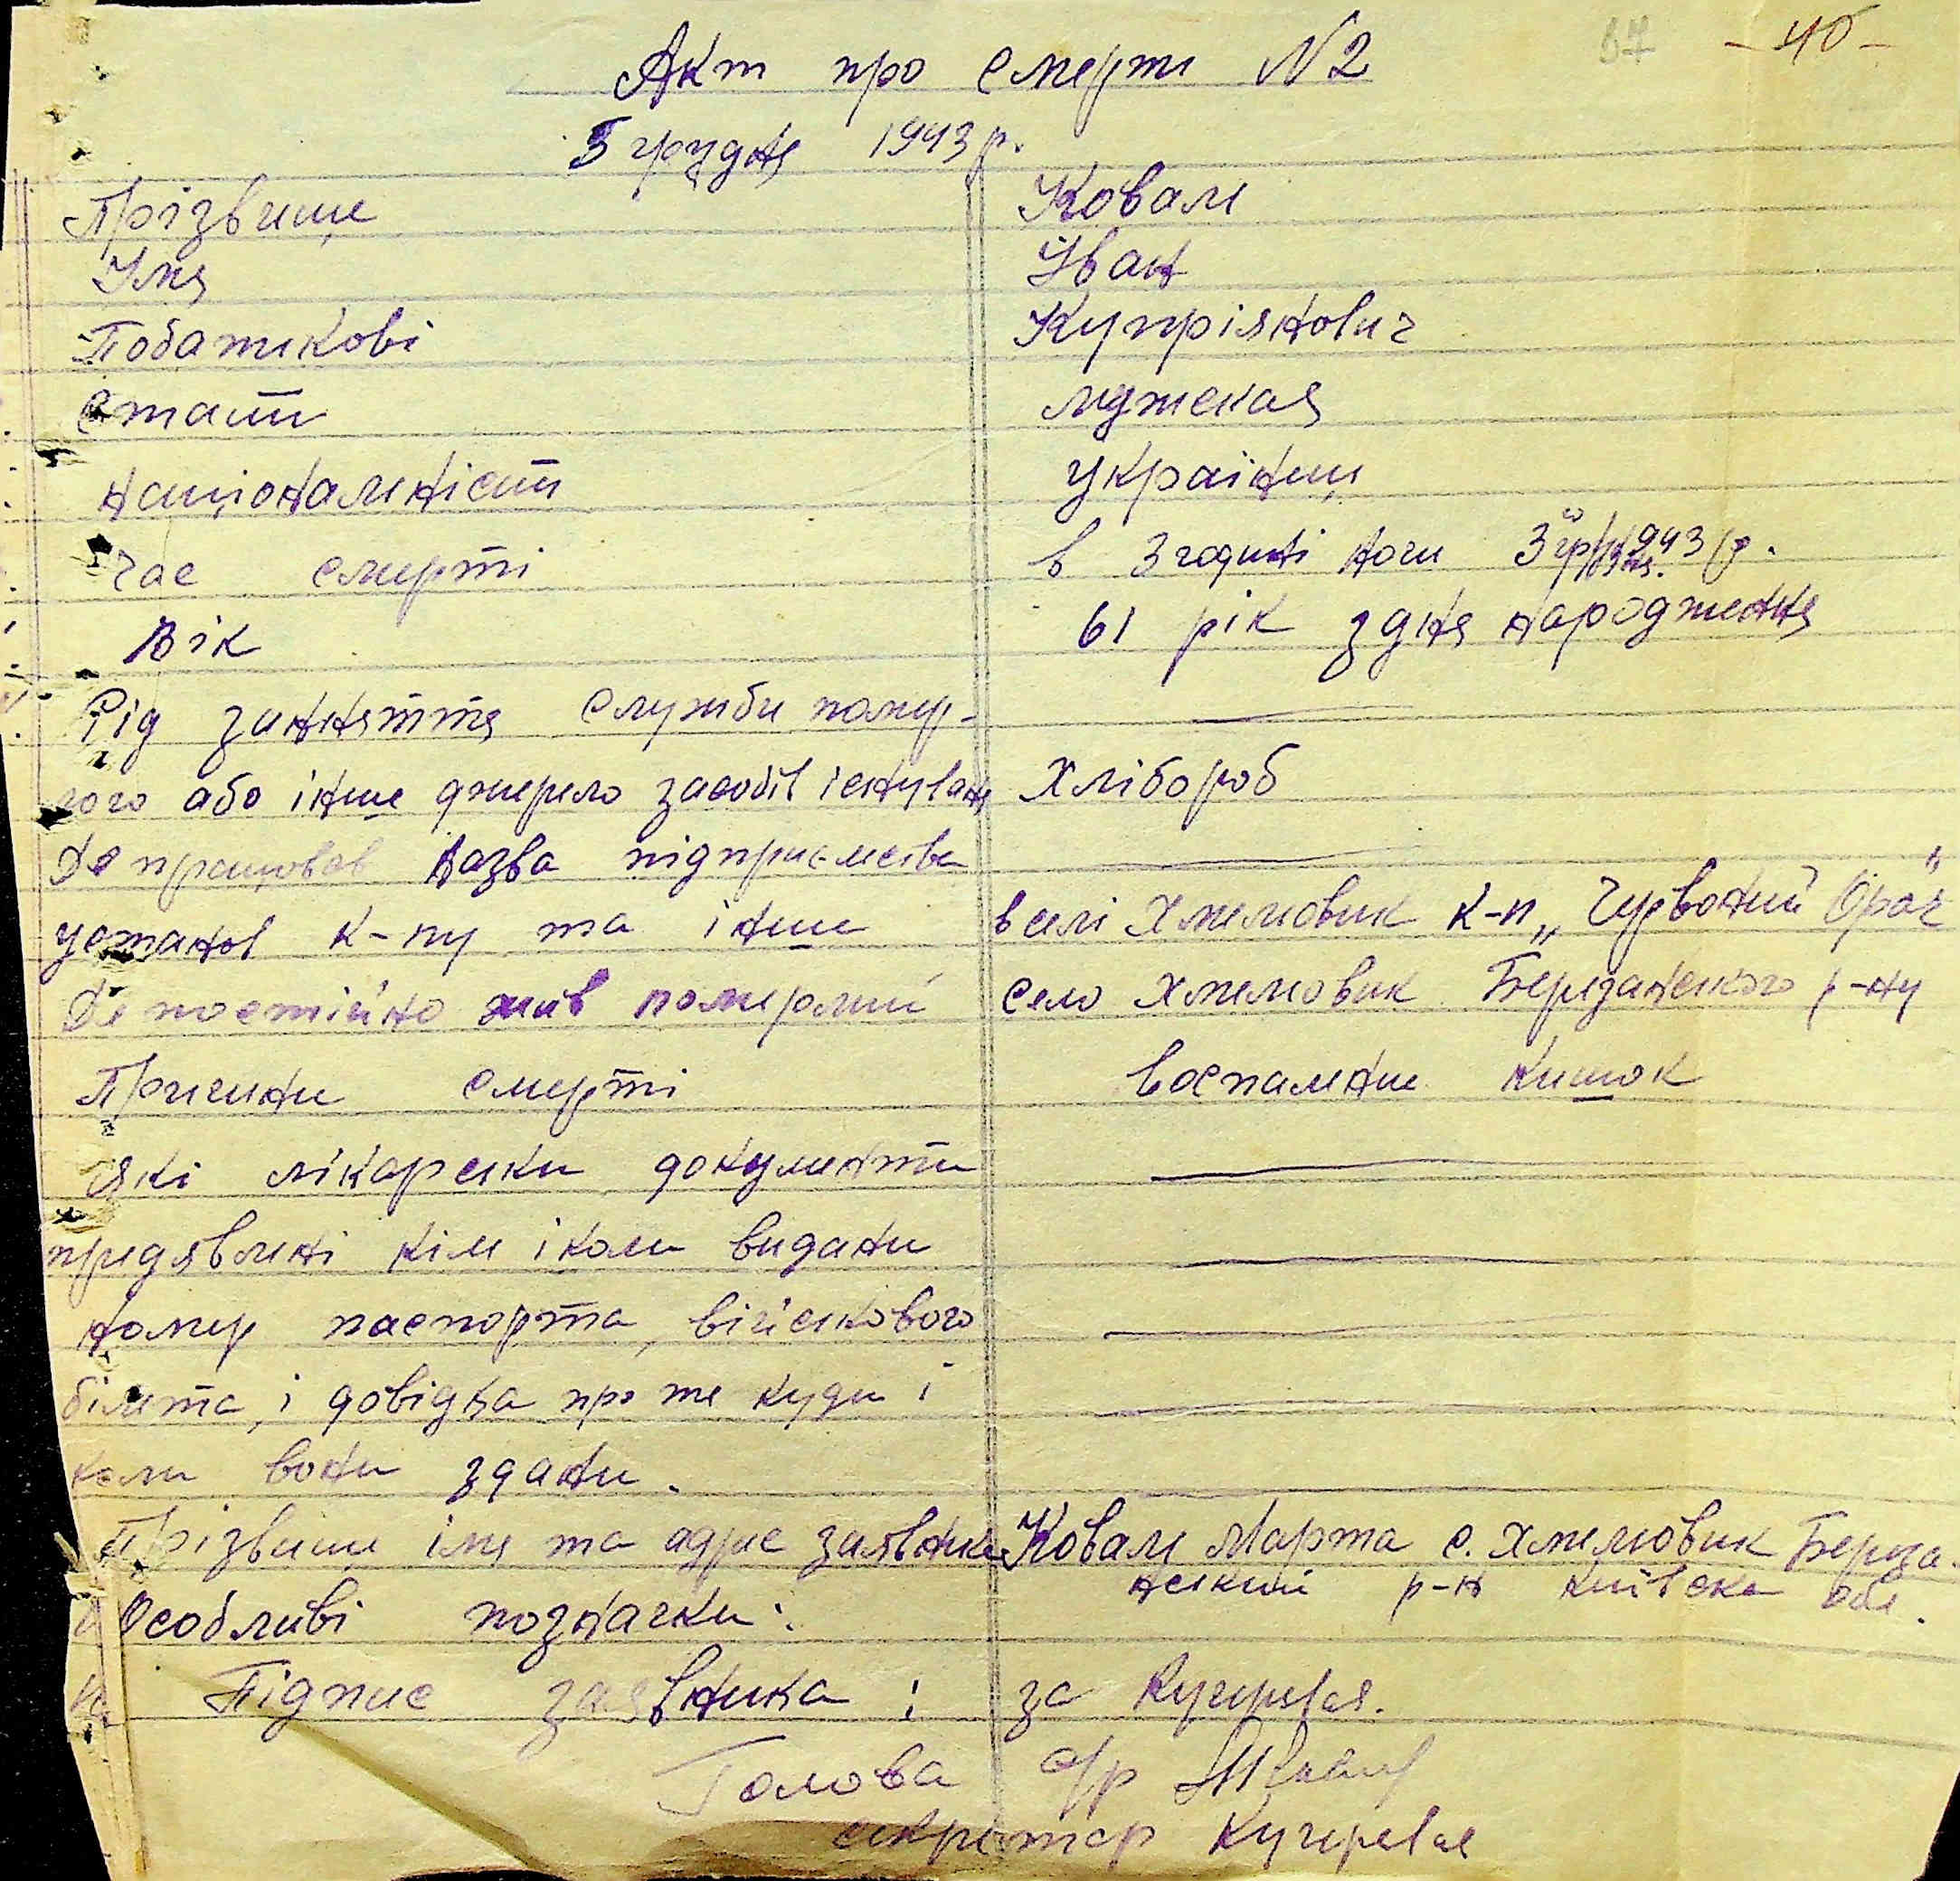 37 - 40 -
Акт про смерть N 2
5 грудня 1943 р.
Прізвище Коваль
Імя Іван
Побатькові Купріянович
Стать мужская
національність українець
Час смерті в 3 годині ночи 3го грудня 1943 р.
Вік 61 рік з дня народження
Рід занняття служби помер-
лого або інше джерело засобів існування Хлібороб
Де працював назва підприємства
установ к-пу та інше в селі Хмельовик к-п „Червоний Орач"
Де постійно жив померлий село Хмельовик Березанського р-ну
Причини смерті воспаление кишок
Які лікарськи документи
предявлені ким і коли видани
номер паспорта, війскового
білета, і довідка про те куди і
коли вони здани.
Прізвище імя та адрес заявника Коваль Марта с. Хмельовик Береза-
нский р-н київска обл.
Особливі позначки:
Підпис заявника: за Кучерева.
Голова с/р
секретар Кучерева